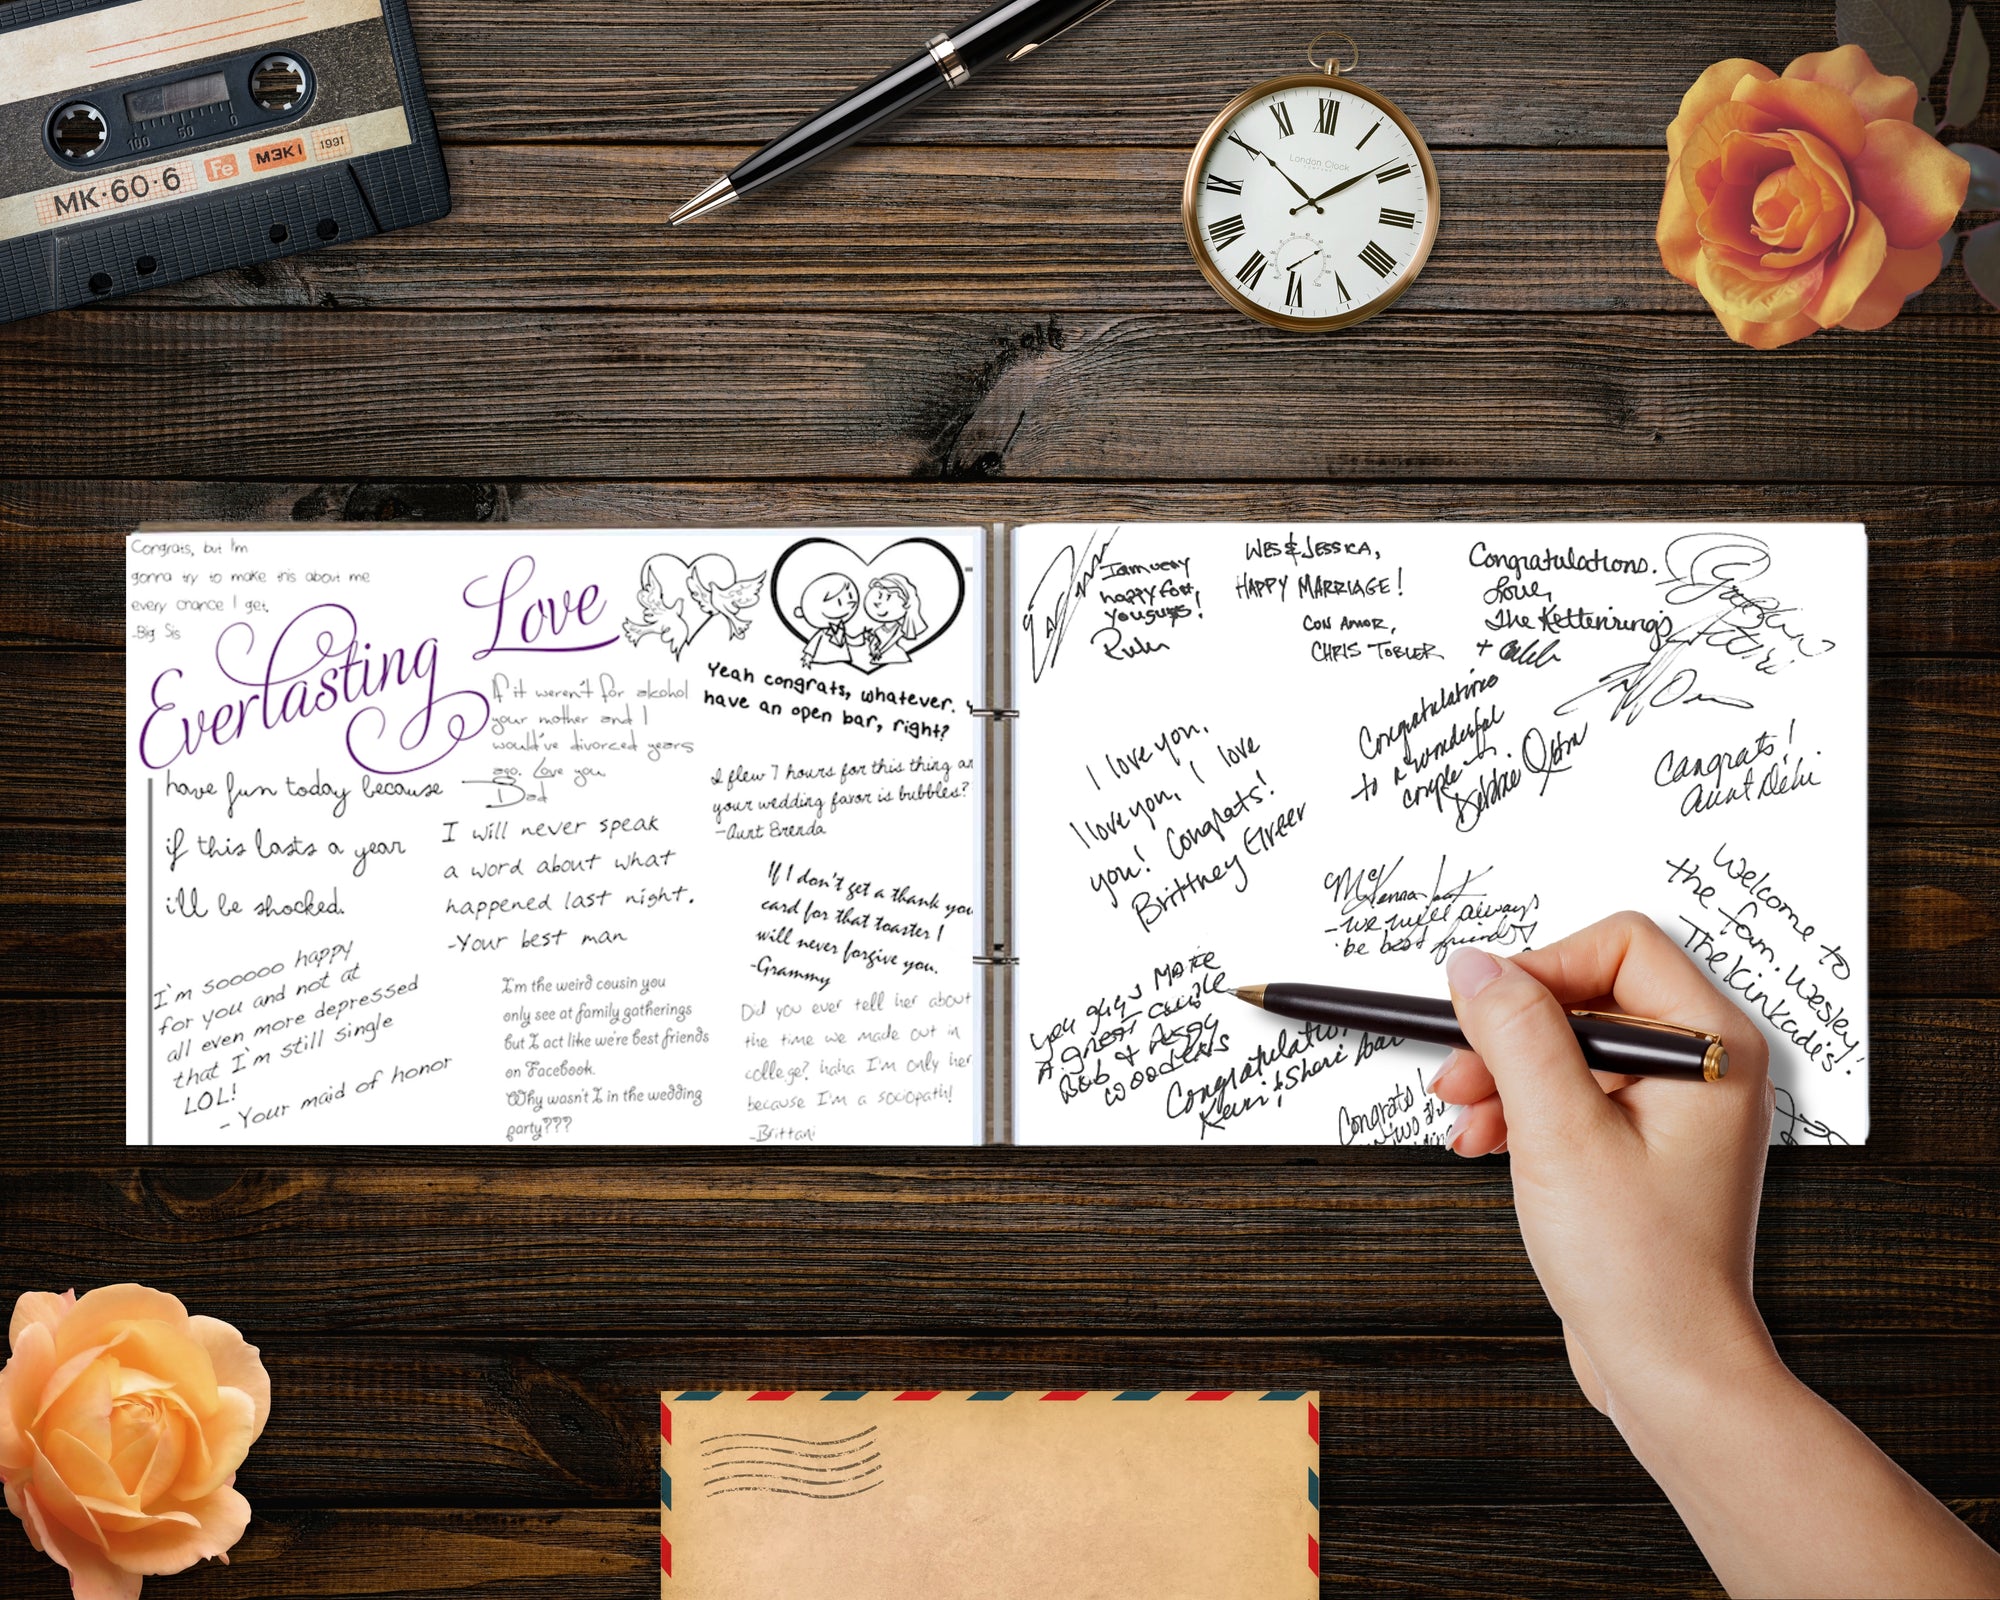 MK·60·6
Fe
МЭКІ
1991
100 50 0
London Clock
XII
I
II
III
IIII
V
VI
VII
VIII
IX
X
XI
Congrats, but I'm
gonna try to make this about me
every chance I get.
-Big Sis
Everlasting Love
Yeah congrats, whatever. Y
have an open bar, right?
If it weren't for alcohol
your mother and I
would've divorced years
ago. Love you
Dad
have fun today because
if this lasts a year
i'll be shocked.
I will never speak
a word about what
happened last night.
-Your best man
I flew 7 hours for this thing an
your wedding favor is bubbles?
-Aunt Brenda
If I don't get a thank you
card for that toaster I
will never forgive you.
-Grammy
I'm sooooo happy
for you and not at
all even more depressed
that I'm still single
LOL!
- Your maid of honor
I'm the weird cousin you
only see at family gatherings
but I act like we're best friends
on Facebook.
Why wasn't I in the wedding
party???
Did you ever tell her about
the time we made out in
college? haha I'm only her
because I'm a sociopath!
-Brittani
I am very
happy for
you guys!
WES & JESSICA,
HAPPY MARRIAGE!
CON AMOR,
CHRIS TOBLER
Congratulations.
Love,
The Kettenrings
+ Caleb
Congratulations
to a wonderful
couple
Debbie
Congrats!
Aunt Debi
I love you,
I love you, I love
you! Congrats!
Brittney Greer
McKenna
-we will always
be best friends
Welcome to
the fam. Wesley!
The Kinkade's
you guys MAKE
A great
Bob & Peggy
Wooders
Congratulation
Kevin & Shari
Congrats!